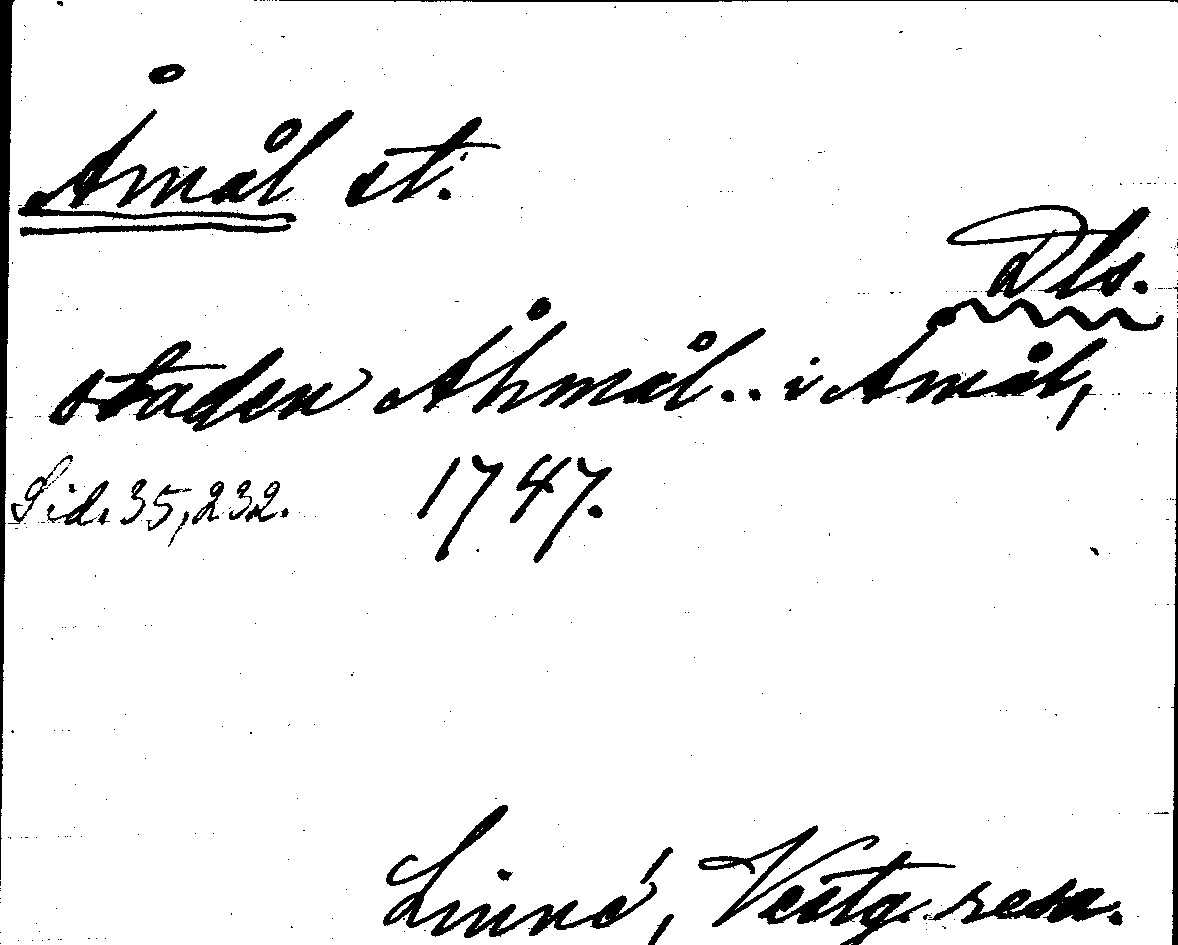 Åmål st.
Dls.
staden Åhmål.. i Åmål,
Sid. 35, 232. 1747.
Linné, Vestg. resa.